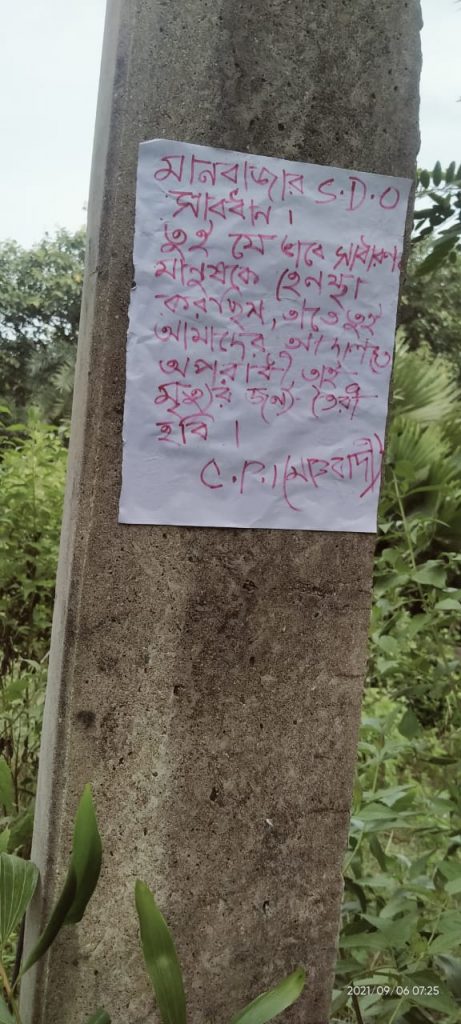 মানবাজার S.D.O
সাবধান ।
তুই যে ভাবে সাধারণ
মানুষকে হেনস্থা
করাছিস, তাতে তুই
আমাদের আদালতে
অপরাধী, তাই
মৃত্যুর জন্য তৈরী
হবি ।
C.P.I (মাওবাদী)
2021/09/06 07:25